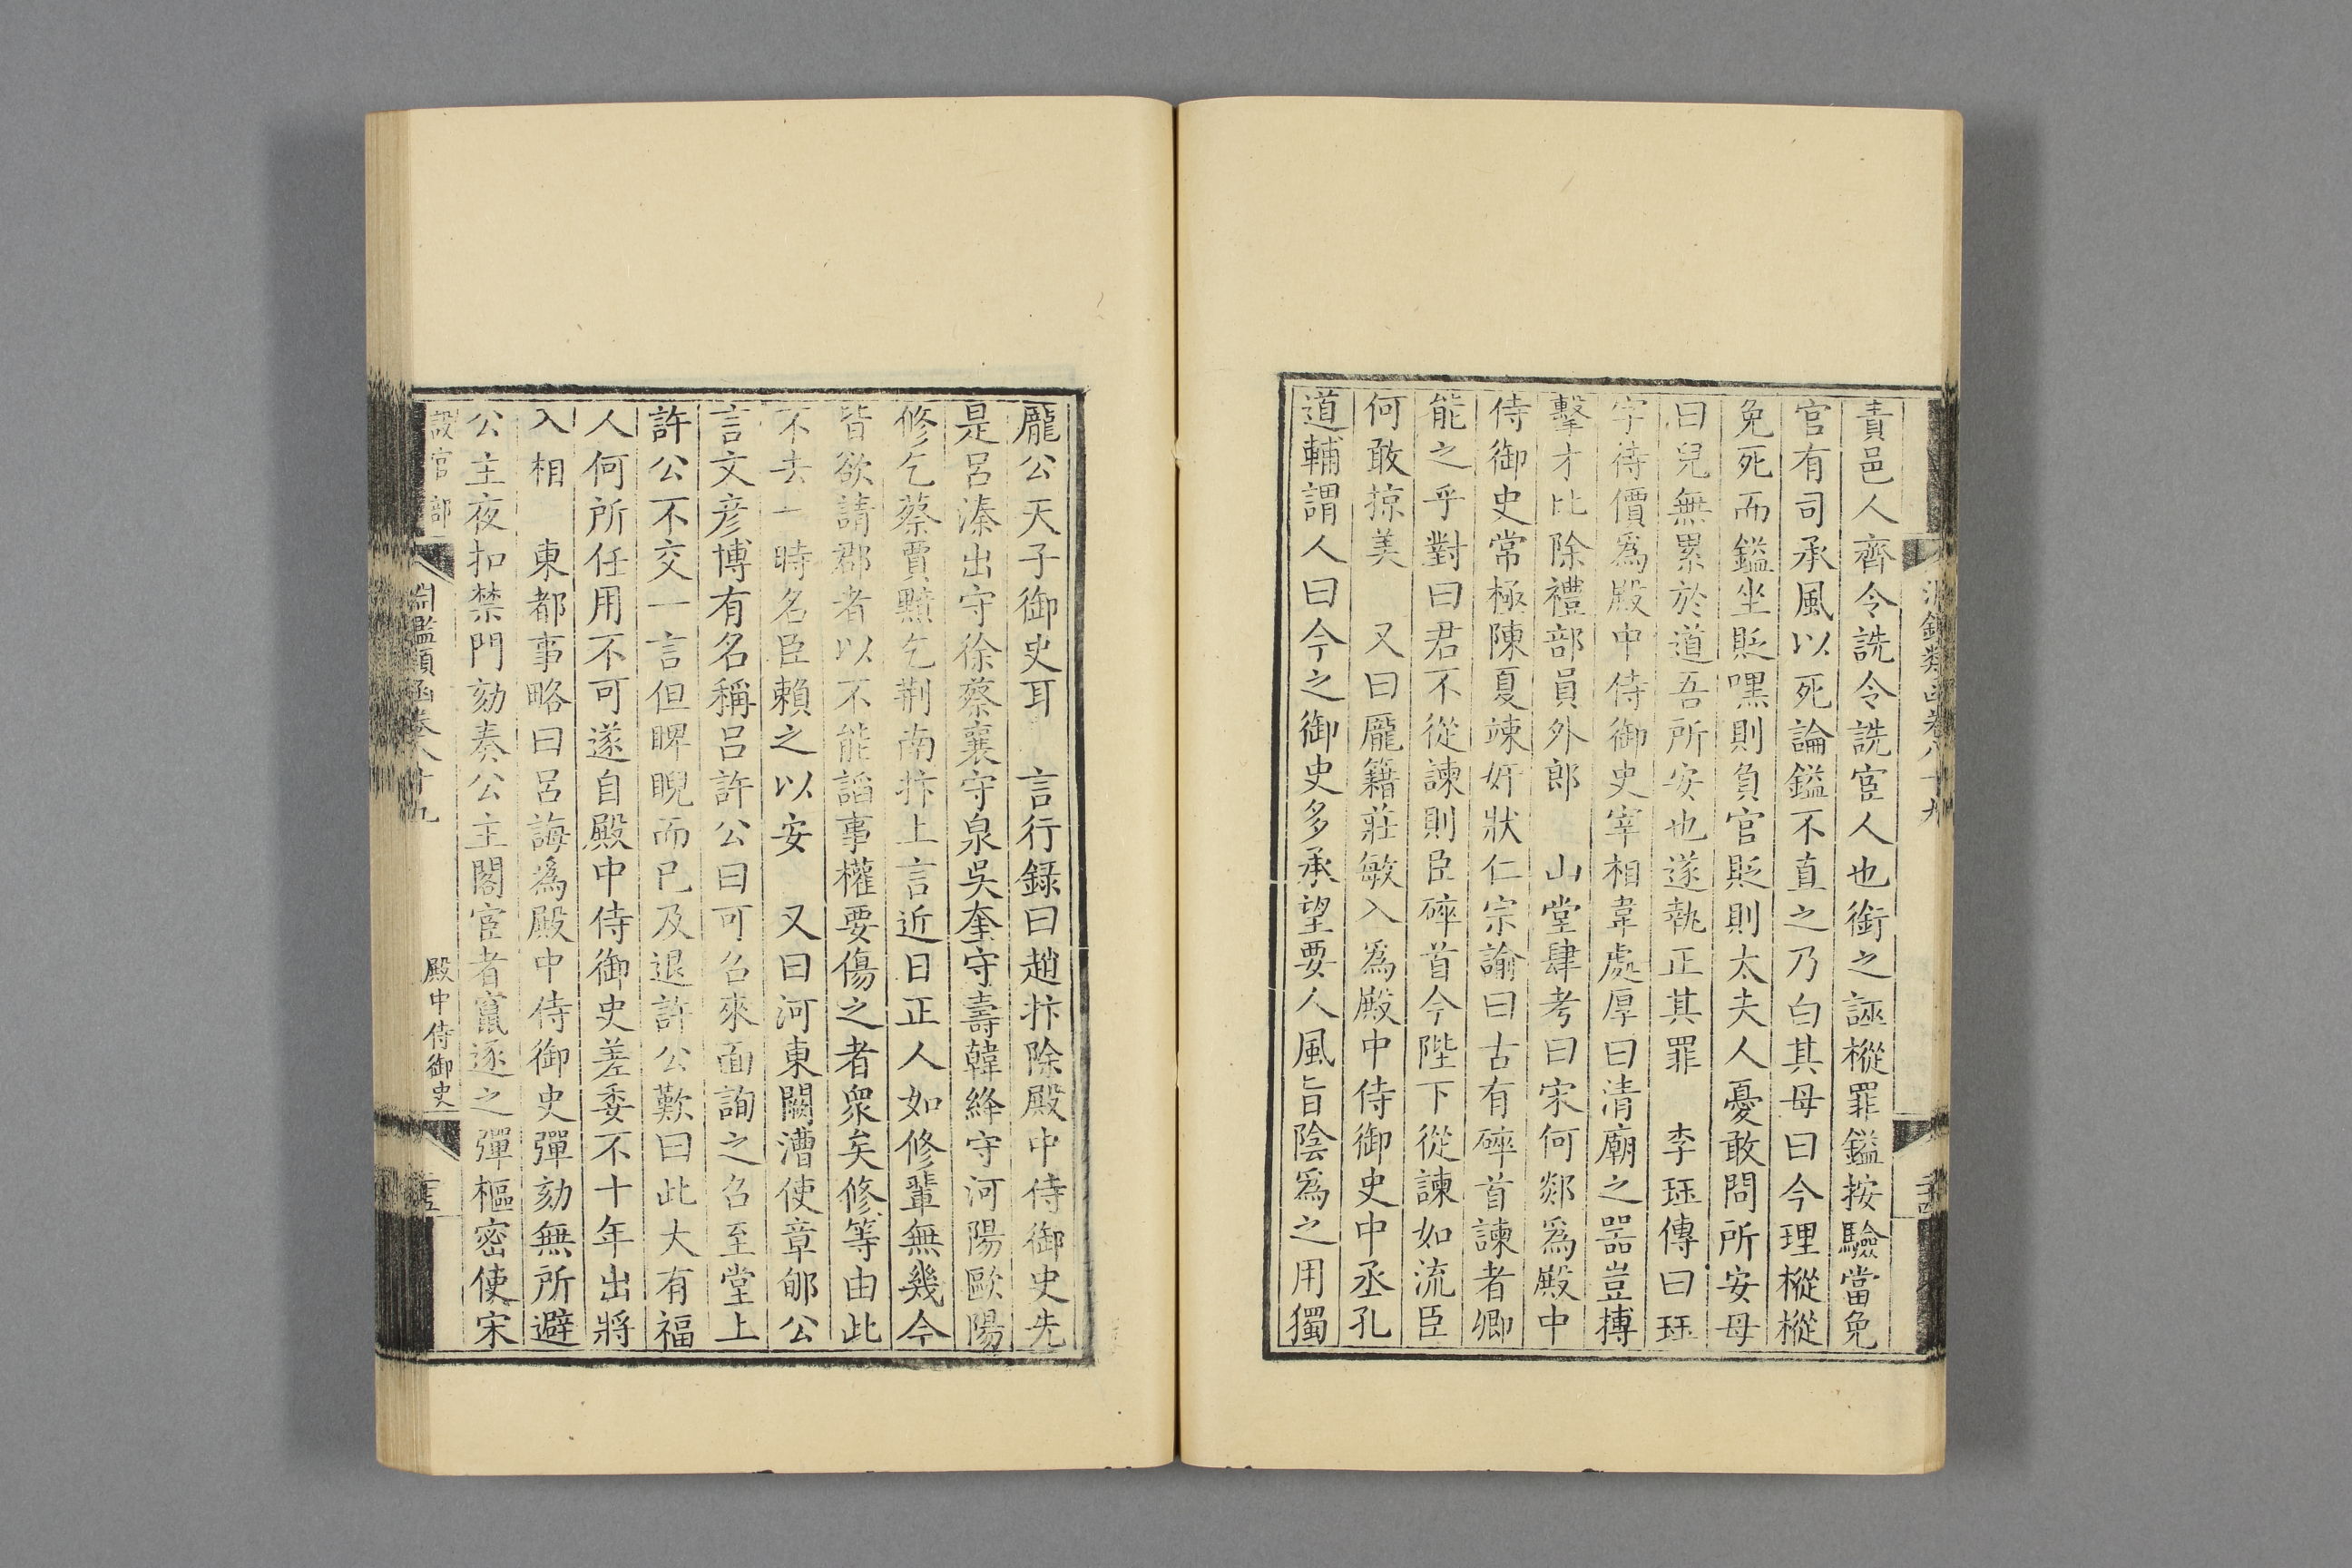 責邑人齊令詵令詵宦人也銜之誣樅罪鎰按驗當免
官有司承風以死論鎰不直之乃白其母曰今理樅樅
免死而鎰坐貶嘿則負官貶則太夫人憂敢問所安母
曰兒無累於道吾所安也遂執正其罪　李珏傳曰珏
字待價爲殿中侍御史宰相韋處厚曰清廟之器豈搏
擊才比除禮部員外郎　山堂肆考曰宋何郯爲殿中
侍御史常極陳夏竦奸狀仁宗諭曰古有碎首諫者卿
能之乎對曰君不從諫則臣碎首今陛下從諫如流臣
何敢掠美　又曰龐籍莊敏入爲殿中侍御史中丞孔
道輔謂人曰今之御史多承望要人風旨陰爲之用獨
龐公天子御史耳　言行録曰趙抃除殿中侍御史先
是呂溱出守徐蔡襄守泉吳奎守壽韓絳守河陽歐陽
修乞蔡賈黯乞荆南抃上言近日正人如修輩無幾今
皆欲請郡者以不能謟事權要傷之者衆矣修等由此
不去一時名臣賴之以安　又曰河東闕漕使章郇公
言文彦博有名稱呂許公曰可召來面詢之召至堂上
許公不交一言但睥睨而已及退許公歎曰此大有福
人何所任用不可遂自殿中侍御史差委不十年出將
入相　東都事略曰呂誨爲殿中侍御史彈劾無所避
公主夜扣禁門劾奏公主閣宦者竄逐之彈樞密使宋
設官部
淵鑑類函卷八十九
殿中侍御史